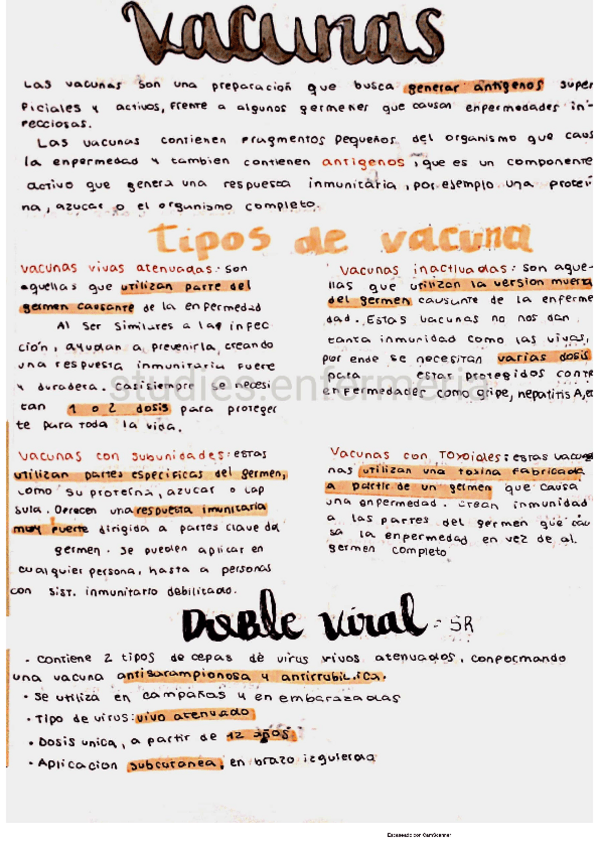 Vacunas
Las vacunas son una preparación que busca generar antigenos super
ficiales y activos, frente a algunos germenes que causan enfermedades in-
fecciosas.
Las vacunas contienen fragmentos pequeños del organismo que caus
la enfermedad y tambien contienen antigenos, que es un componente
activo que genera una respuesta inmunitaria, por ejemplo una protei
na, azucar o el organismo completo.
Tipos de vacuna
Vacunas vivas atenuadas: son
aquellas que utilizan parte del
germen causante de la enfermedad
Al ser similares a las infec
ción, ayudan a prevenirla, creando
una respuesta inmunitaria fuerte
y duradera. Casi siempre se necesi
tan 1 o 2 dosis para proteger
te para toda la vida.
Vacunas inactivadas: son aque-
llas que utilizan la version muerta
del germen causante de la enferme
dad. Estas vacunas no nos dan
tanta inmunidad como las vivas,
por ende se necesitan varias dosis
para estar protegidos contr
enfermedades como gripe, hepatitis A, et
studies.enfermeria
Vacunas con subunidades: estas
utilizan partes especificas del germen,
como su proteina, azucar o cap
sula. Ofrecen una respuesta imunitaria
muy fuerte dirigida a partes clave del
germen. Se pueden aplicar en
cualquier persona, hasta a personas
con sist. inmunitario debilitado.
Vacunas con Toxoides: estas vacu
nas utilizan una toxina fabricada
a partir de un germen que causa
una enfermedad. Crean inmunidad
a las partes del germen que cau
sa la enfermedad en vez de al
germen completo
Doble Viral - SR
• Contiene 2 tipos de cepas de virus vivos atenuados, conformando
una vacuna antisarampionosa y antirrubiolica.
• Se utiliza en campañas y en embarazadas
• Tipo de virus: vivo atenuado
• Dosis unica, a partir de 12 años
• Aplicacion subcutanea, en brazo izquierdo
Escaneado con CamScanner